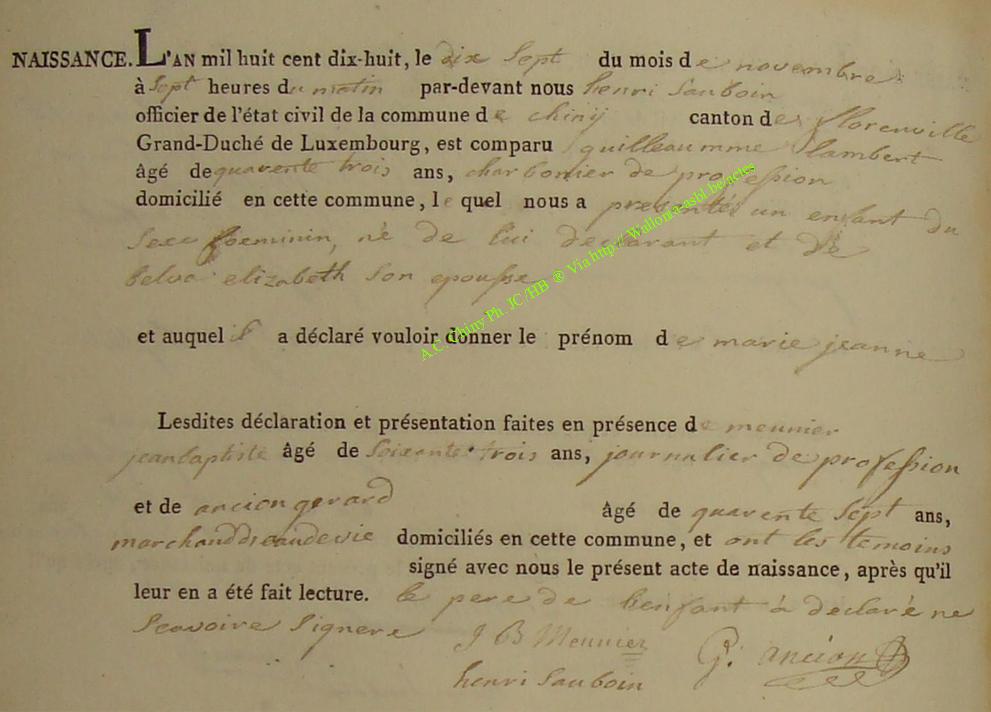 NAISSANCE. L'AN mil huit cent dix-huit, le dix Sept du mois de novembre
à Sept heures du matin par-devant nous henri Sauboin
officier de l'état civil de la commune de chinÿ canton de florenville
Grand-Duché de Luxembourg, est comparu guilleaumme lambert
âgé de quarente trois ans, charbonier de profession
domicilié en cette commune, le quel nous a presentés un enfant du
Sexe foeminin, né de lui declarant et de
belva elizabeth Son epousse
et auquel il a déclaré vouloir donner le prénom de marie jeanne
Lesdites déclaration et présentation faites en présence de meunier
jeanbaptiste âgé de Soixente trois ans, journalier de profession
et de ancion gerard âgé de quarente Sept ans,
marchand deaudevie domiciliés en cette commune, et ont les temoins
signé avec nous le présent acte de naissance, après qu'il
leur en a été fait lecture. le pere de lenfant à declaré ne
Scavoire Signere J B Meunier G. ancion
henri Sauboin
A.C Chiny Ph. JC/HB ® Via http// Wallonia-asbl.be/actes